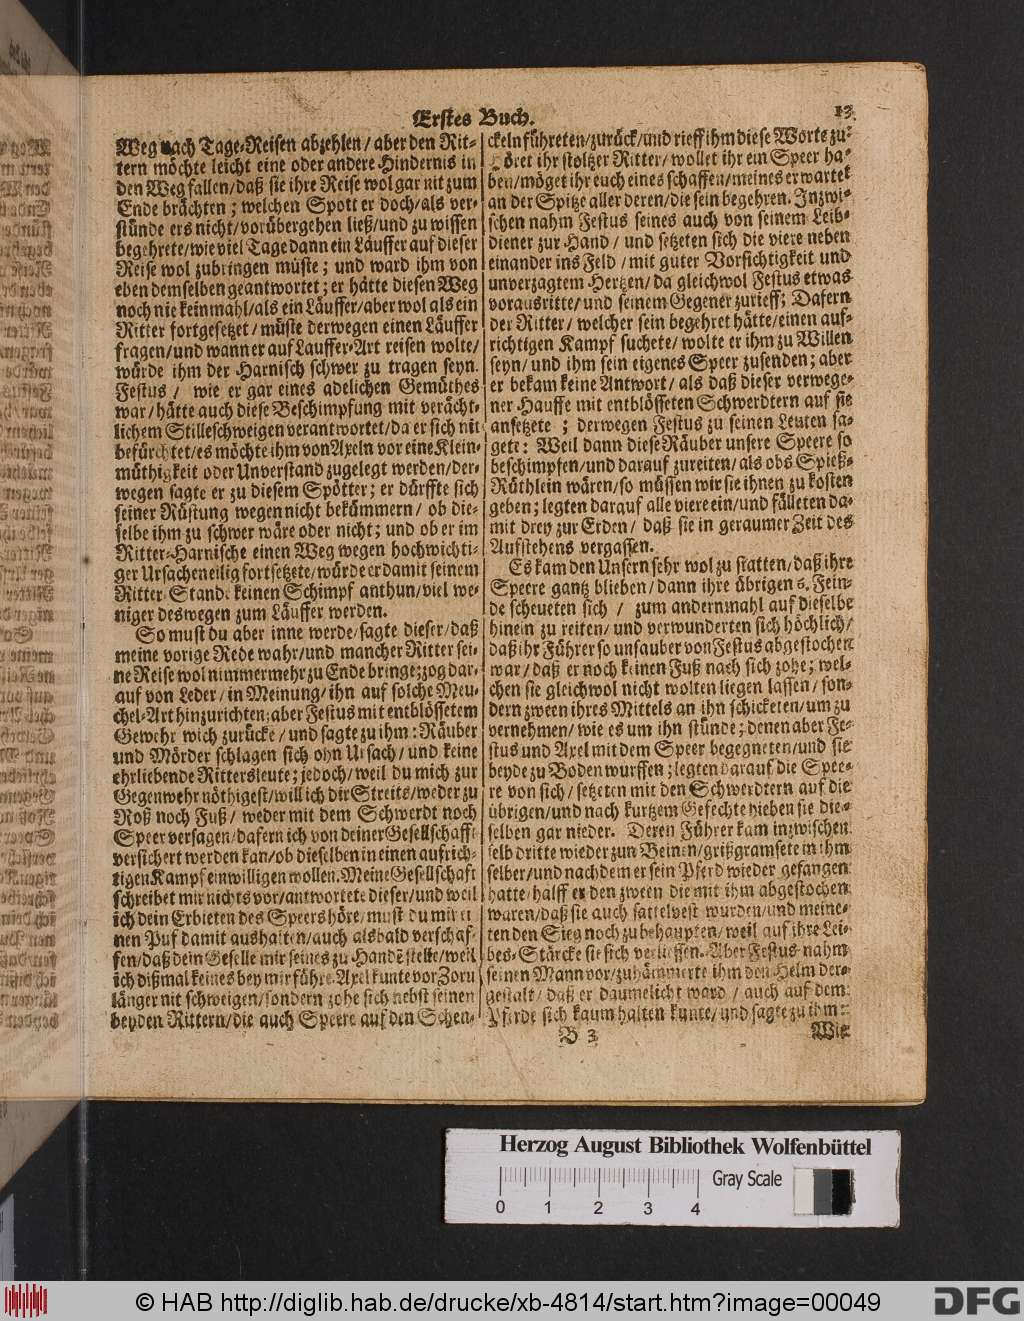 Erstes Buch.
13
Weg nach Tage-Reisen abzehlen/ aber den Rit-
tern möchte leicht eine oder andere Hindernis in
den Weg fallen/ daß sie ihre Reise wol gar nit zum
Ende brächten; welchen Spott er doch/ als ver-
stünde ers nicht/ vorübergehen ließ/ und zu wissen
begehrete/ wie viel Tage dann ein Läuffer auf dieser
Reise wol zubringen müste; und ward ihm von
eben demselben geantwortet; er hätte diesen Weg
noch nie keinmahl/ als ein Läuffer/ aber wol als ein
Ritter fortgesetzet/ müste derwegen einen Läuffer
fragen/ und wann er auf Lauffer-Art reisen wolte/
würde ihm der Harnisch schwer zu tragen seyn.
Festus/ wie er gar eines adelichen Gemüthes
war/ hätte auch diese Beschimpfung mit verächt-
lichem Stilleschweigen verantwortet/ da er sich nit
befürchtet/ es möchte ihm von Axeln vor eine Klein-
müthigkeit oder Unverstand zugelegt werden/ der-
wegen sagte er zu diesem Spötter; er dürffte sich
seiner Rüstung wegen nicht bekümmern/ ob die-
selbe ihm zu schwer wäre oder nicht; und ob er im
Ritter-Harnische einen Weg wegen hochwichti-
ger Ursachen eilig fortsetzete/ würde er damit seinem
Ritter-Stande keinen Schimpf anthun/ viel we-
niger deswegen zum Läuffer werden.
So must du aber inne werde/ sagte dieser/ daß
meine vorige Rede wahr/ und mancher Ritter sei-
ne Reise wol nimmermehr zu Ende bringe; zog dar-
auf von Leder/ in Meinung/ ihn auf solche Meu-
chel-Art hinzurichten; aber Festus mit entblössetem
Gewehr wich zurücke/ und sagte zu ihm: Räuber
und Mörder schlagen sich ohn Ursach/ und keine
ehrliebende Rittersleute; jedoch/ weil du mich zur
Gegenwehr nöthigest/ will ich dir Streits/ weder zu
Roß noch Fuß/ weder mit dem Schwerdt noch
Speer versagen/ dafern ich von deiner Gesellschafft
versichert werden kan/ ob dieselben in einen aufrich-
tigen Kampf einwilligen wollen. Meine Gesellschaft
schreibet mir nichts vor/ antwortete dieser/ und weil
ich dein Erbieten des Speers höre/ must du mir ei-
nen Puf damit aushalten/ auch alsbald verschaf-
fen/ daß dein Geselle mir seines zu Handē stelle/ weil
ich dißmal keines bey mir führe. Axel kunte vor Zorn
länger nit schweigen/ sondern zohe sich nebst seinen
beyden Rittern/ die auch Speere auf den Schen-
ckeln führeten/ zurück/ und rieff ihm diese Worte zu:
Höret ihr stoltzer Ritter/ wollet ihr ein Speer ha-
ben/ möget ihr euch eines schaffen/ meines erwartet
an der Spitze aller deren/ die sein begehren. Inzwi-
schen nahm Festus seines auch von seinem Leib-
diener zur Hand/ und setzeten sich die viere neben
einander ins Feld/ mit guter Vorsichtigkeit und
unverzagtem Hertzen/ da gleichwol Festus etwas
vorausritte/ und seinem Gegener zurieff; Dafern
der Ritter/ welcher sein begehret hätte/ einen auf-
richtigen Kampf suchete/ wolte er ihm zu Willen
seyn/ und ihm sein eigenes Speer zusenden; aber
er bekam keine Antwort/ als daß dieser verwege-
ner Hauffe mit entblösseten Schwerdtern auf sie
ansetzete; derwegen Festus zu seinen Leuten sa-
gete: Weil dann diese Räuber unsere Speere so
beschimpfen/ und darauf zureiten/ als obs Spieß-
Rüthlein wären/ so müssen wir sie ihnen zu kosten
geben; legten darauf alle viere ein/ und fälleten da-
mit drey zur Erden/ daß sie in geraumer Zeit des
Aufstehens vergassen.
Es kam den Unsern sehr wol zu statten/ daß ihre
Speere gantz blieben/ dann ihre übrigen 6. Fein-
de scheueten sich/ zum andernmahl auf dieselbe
hinein zu reiten/ und verwunderten sich höchlich/
daß ihr Führer so unsauber von Festus abgestochen
war/ daß er noch keinen Fuß nach sich zohe; wel-
chen sie gleichwol nicht wolten liegen lassen/ son-
dern zween ihres Mittels an ihn schicketen/ um zu
vernehmen/ wie es um ihn stünde; denen aber Fe-
stus und Axel mit dem Speer begegneten/ und sie
beyde zu Boden wurffen; legten darauf die Spee-
re von sich/ setzeten mit den Schwerdtern auf die
übrigen/ und nach kurtzem Gefechte hieben sie die-
selben gar nieder. Deren Führer kam inzwischen
selb dritte wieder zun Beinen/ grißgramsete in ihm
selber/ und nachdem er sein Pferd wieder gefangen
hatte/ halff er den zween die mit ihm abgestochen
waren/ daß sie auch sattelvest wurden/ und meine-
ten den Sieg noch zu behaupten/ weil auf ihre Lei-
bes-Stärcke sie sich verliessen. Aber Festus nahm
seinen Mann vor/ zuhämmerte ihm den Helm der-
gestalt/ daß er daumelicht ward/ auch auf dem
Pferde sich kaum halten kunte/ und sagte zu ihm:
B 3
Wie
Herzog August Bibliothek Wolfenbüttel
Gray Scale
0 1 2 3 4
© HAB http://diglib.hab.de/drucke/xb-4814/start.htm?image=00049
DFG